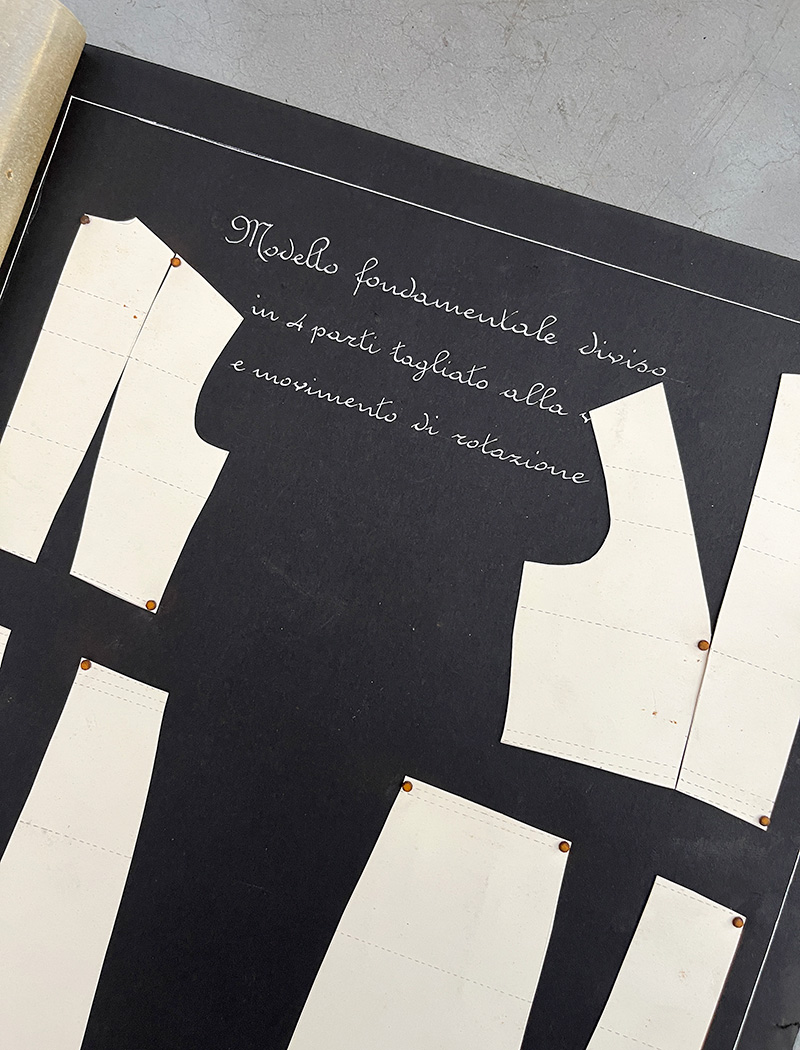 Modello fondamentale diviso
in 4 parti tagliato alla
e movimento di rotazione